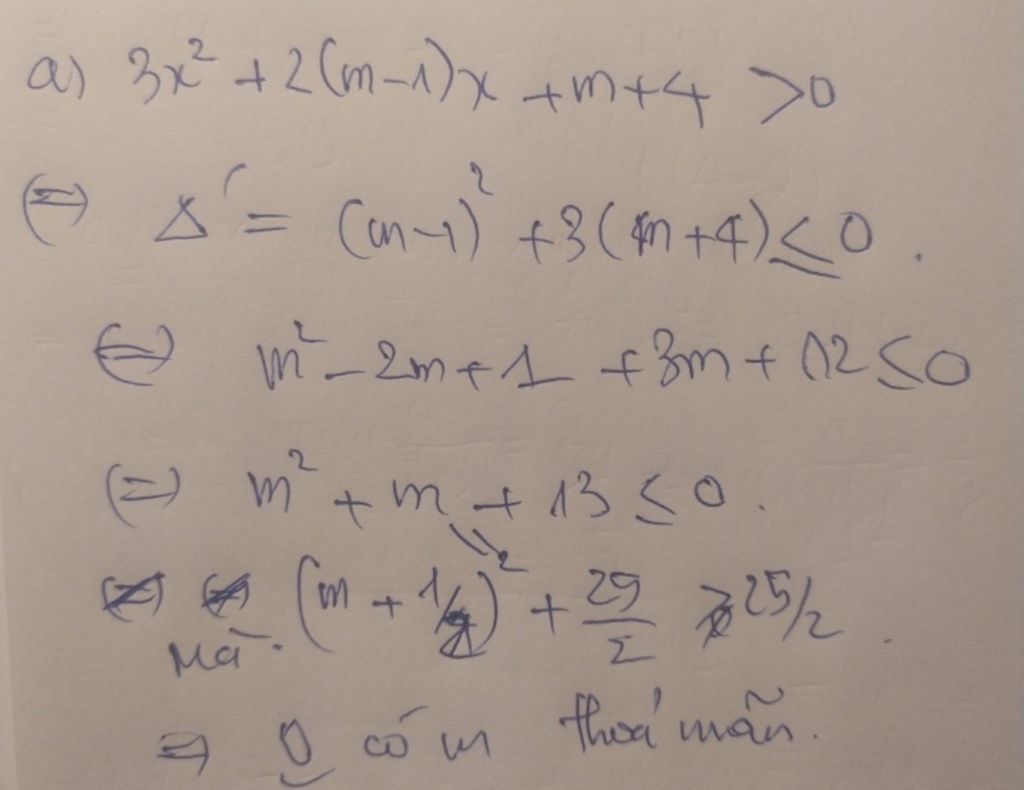 a) 3x² + 2(m-1)x + m+4 >0
(=) Δ' = (m-1)² + 3(m+4) ≤ 0.
(=) m² - 2m + 1 + 3m + 12 ≤ 0
(=) m² + m + 13 ≤ 0.
(m + 1/2)² + 25/2 ≥ 25/2.
Mà
=> 0 có m thoả mãn.